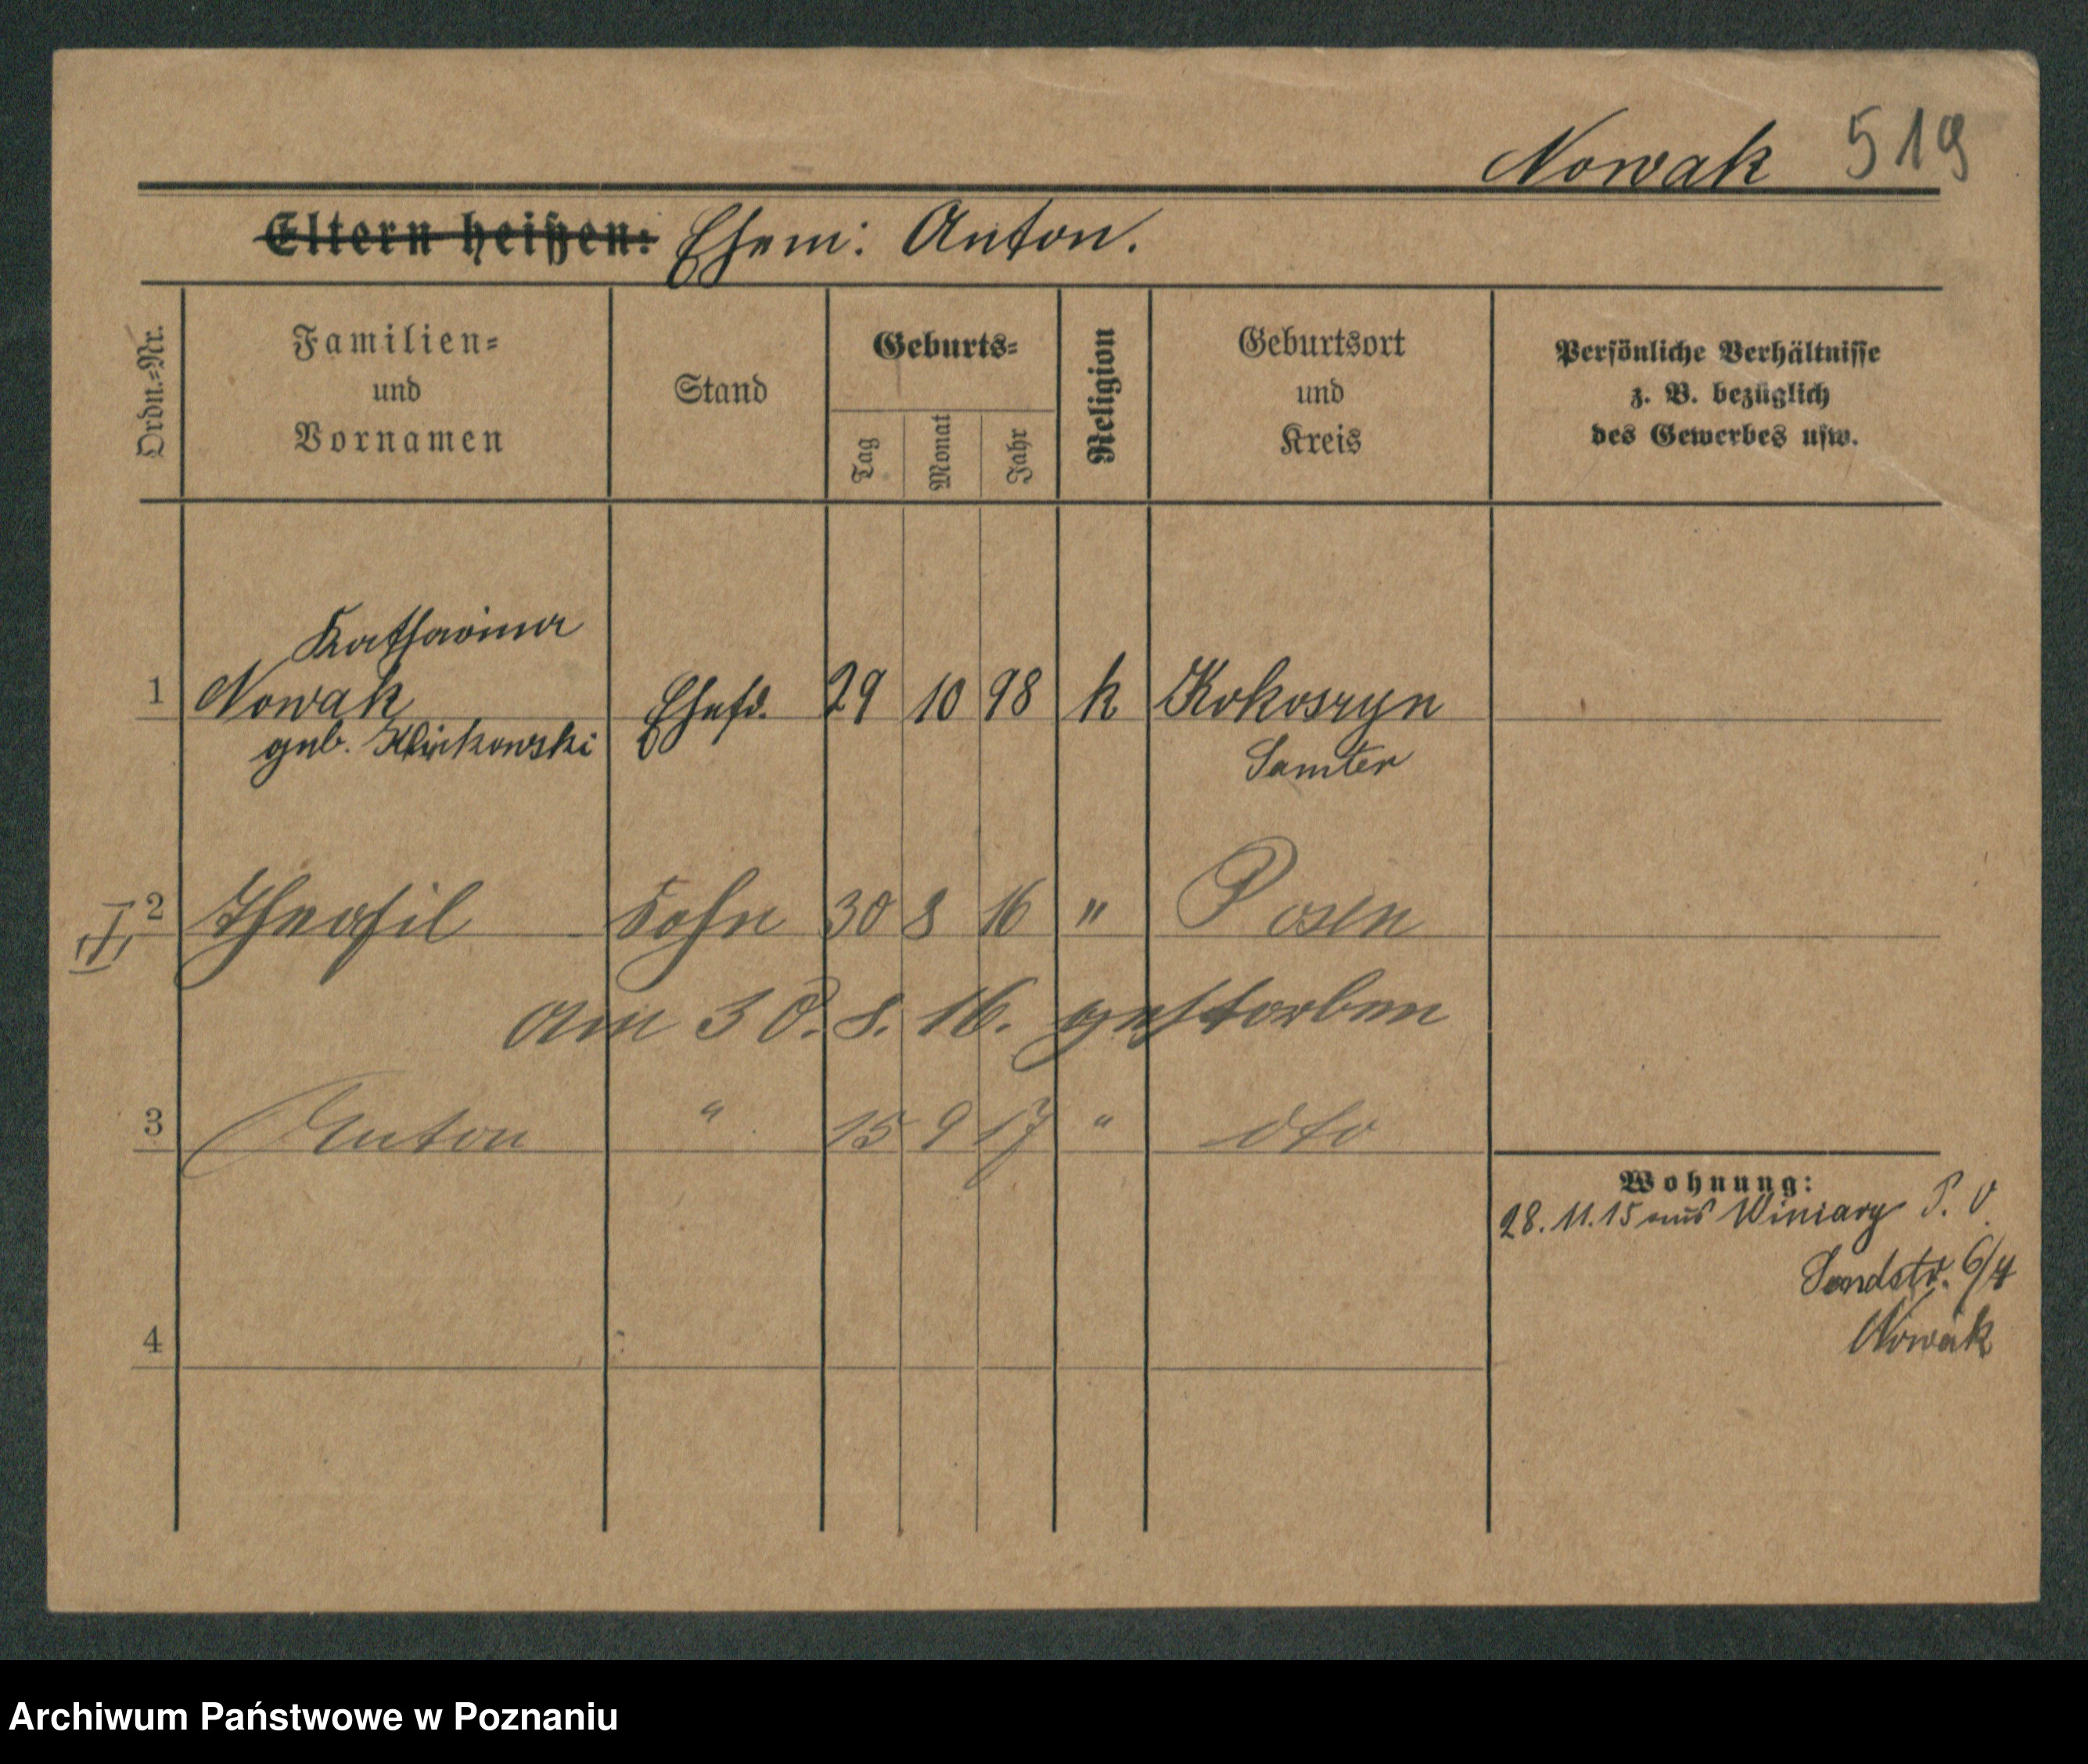 Nowak 519
Eltern heißen: Ehem: Anton.
Ordn.=Nr.
Familien=
und
Vornamen
Stand
Geburts=
Tag
Monat
Jahr
Religion
Geburtsort
und
Kreis
Persönliche Verhältnisse
z. B. bezüglich
des Gewerbes usw.
Katharina
1 Nowak Ehefr. 29 10 98 k Kokoszyn
geb. Samter
2 Theofil Sohn 30 8 16 " Posen
am 30. 8. 16. gestorben
3 Anton " 15 9 17 " dto
Wohnung:
28. 11. 15 aus Winiary P. O.
Sandstr. 6/4
Nowak
4
Archiwum Państwowe w Poznaniu